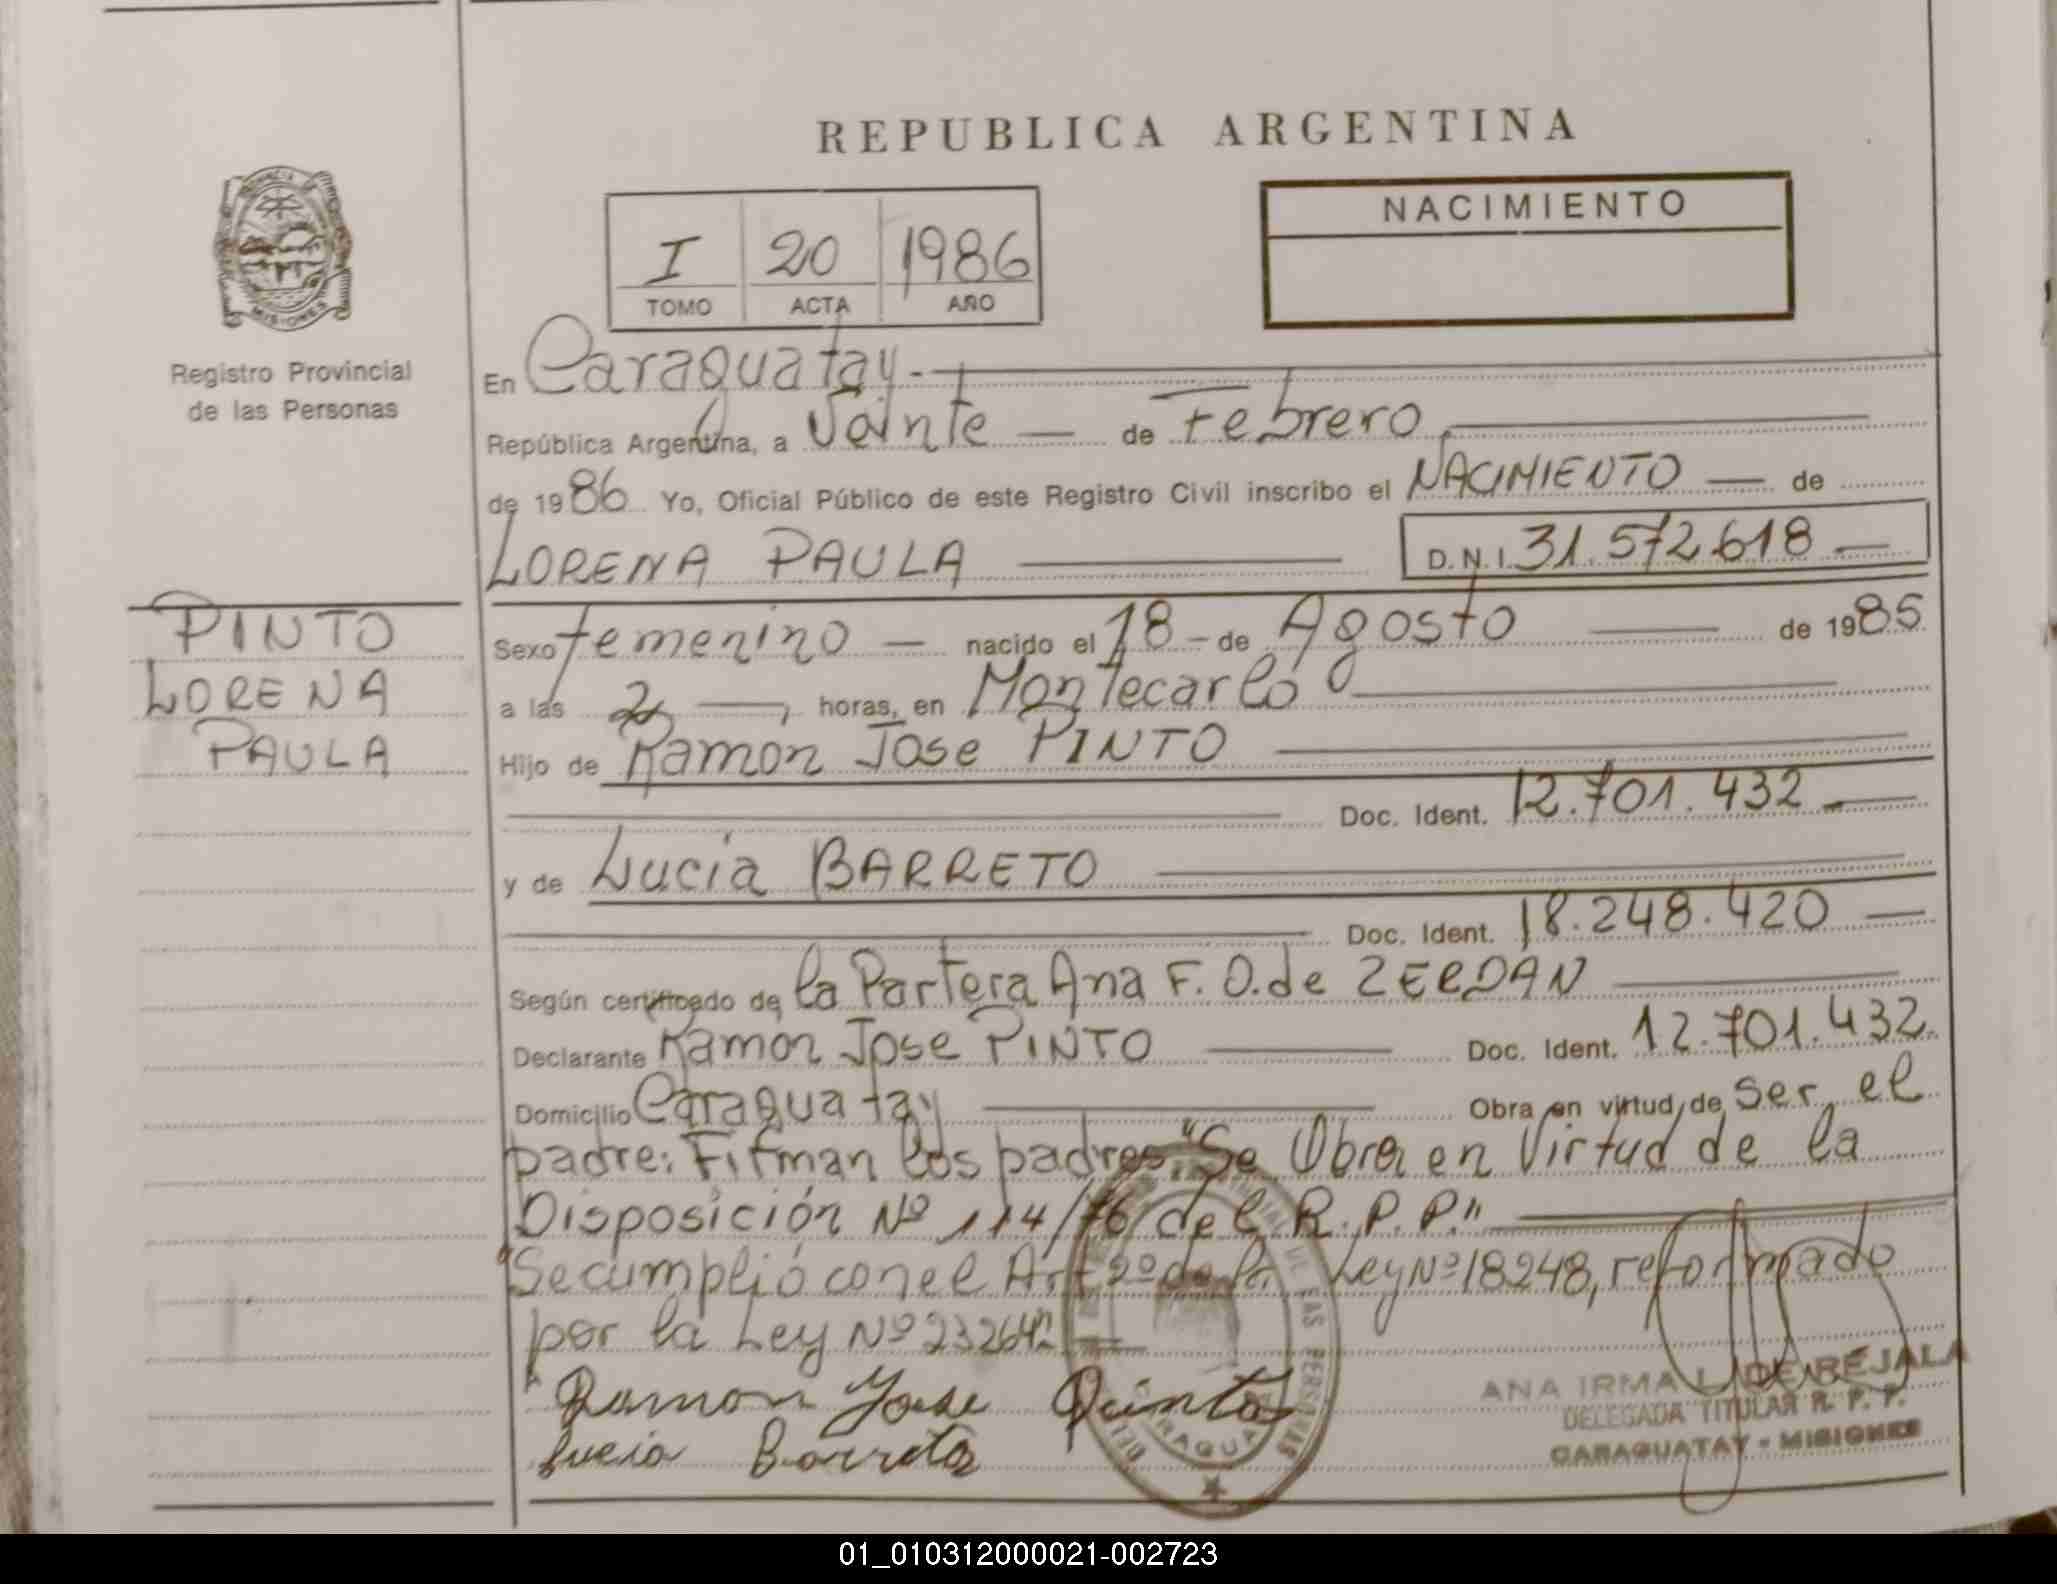 REPUBLICA ARGENTINA
I 20 1986
TOMO ACTA AÑO
NACIMIENTO
PROVINCIA DE
MISIONES
Registro Provincial
de las Personas
En Caraguatay
República Argentina, a Veinte de Febrero
de 1986 Yo, Oficial Público de este Registro Civil inscribo el NACIMIENTO de
LORENA PAULA D.N.I. 31.572.618
PINTO
LORENA
PAULA
Sexo femenino nacido el 18 de Agosto de 1985
a las 2, horas, en Montecarlo
Hijo de Ramon Jose PINTO
Doc. Ident. 12.701.432
y de Lucia BARRETO
Doc. Ident. 18.248.420
Según certificado de la Partera Ana F. O. de ZERDAN
Declarante Ramon Jose PINTO Doc. Ident. 12.701.432
Domicilio Caraguatay Obra en virtud de ser el
padre: Firman los padres. "Se Obra en Virtud de la
Disposición Nº 114/76 del R.P.P."
"Se cumplió con el Art 2º de la Ley Nº 18248, reformado
por la Ley Nº 23264"
Ramon Jose Pinto
Lucia Barreto
ANA IRMA L. DE BEJALA
DELEGADA TITULAR R. P. P.
CARAGUATAY - MISIONES
01_010312000021-002723